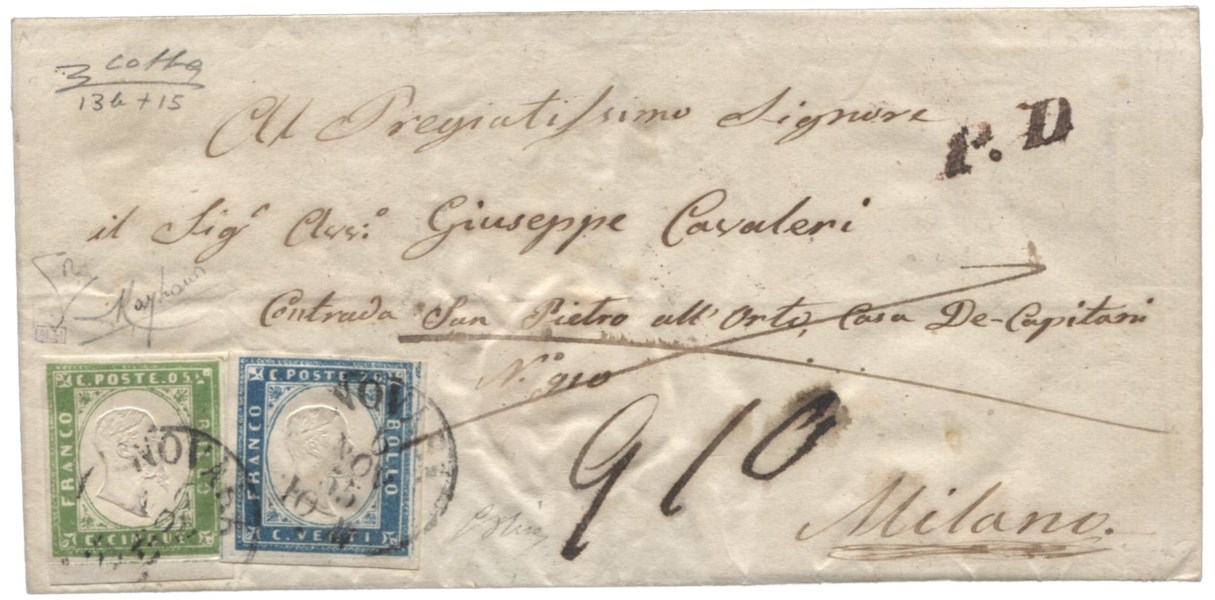 3 cotta
13b + 15
Al Pregiatissimo Signore
P. D
il Sigr Avv:o Giuseppe Cavaleri
Contrada San Pietro all'Orto, Casa De-Capitani
No 910
910
Milano.
C. POSTE. 05.
FRANCO
C. CINQUE
C. POSTE. 20
FRANCO
BOLLO
C. VENTI
NOVARA
NOVARA